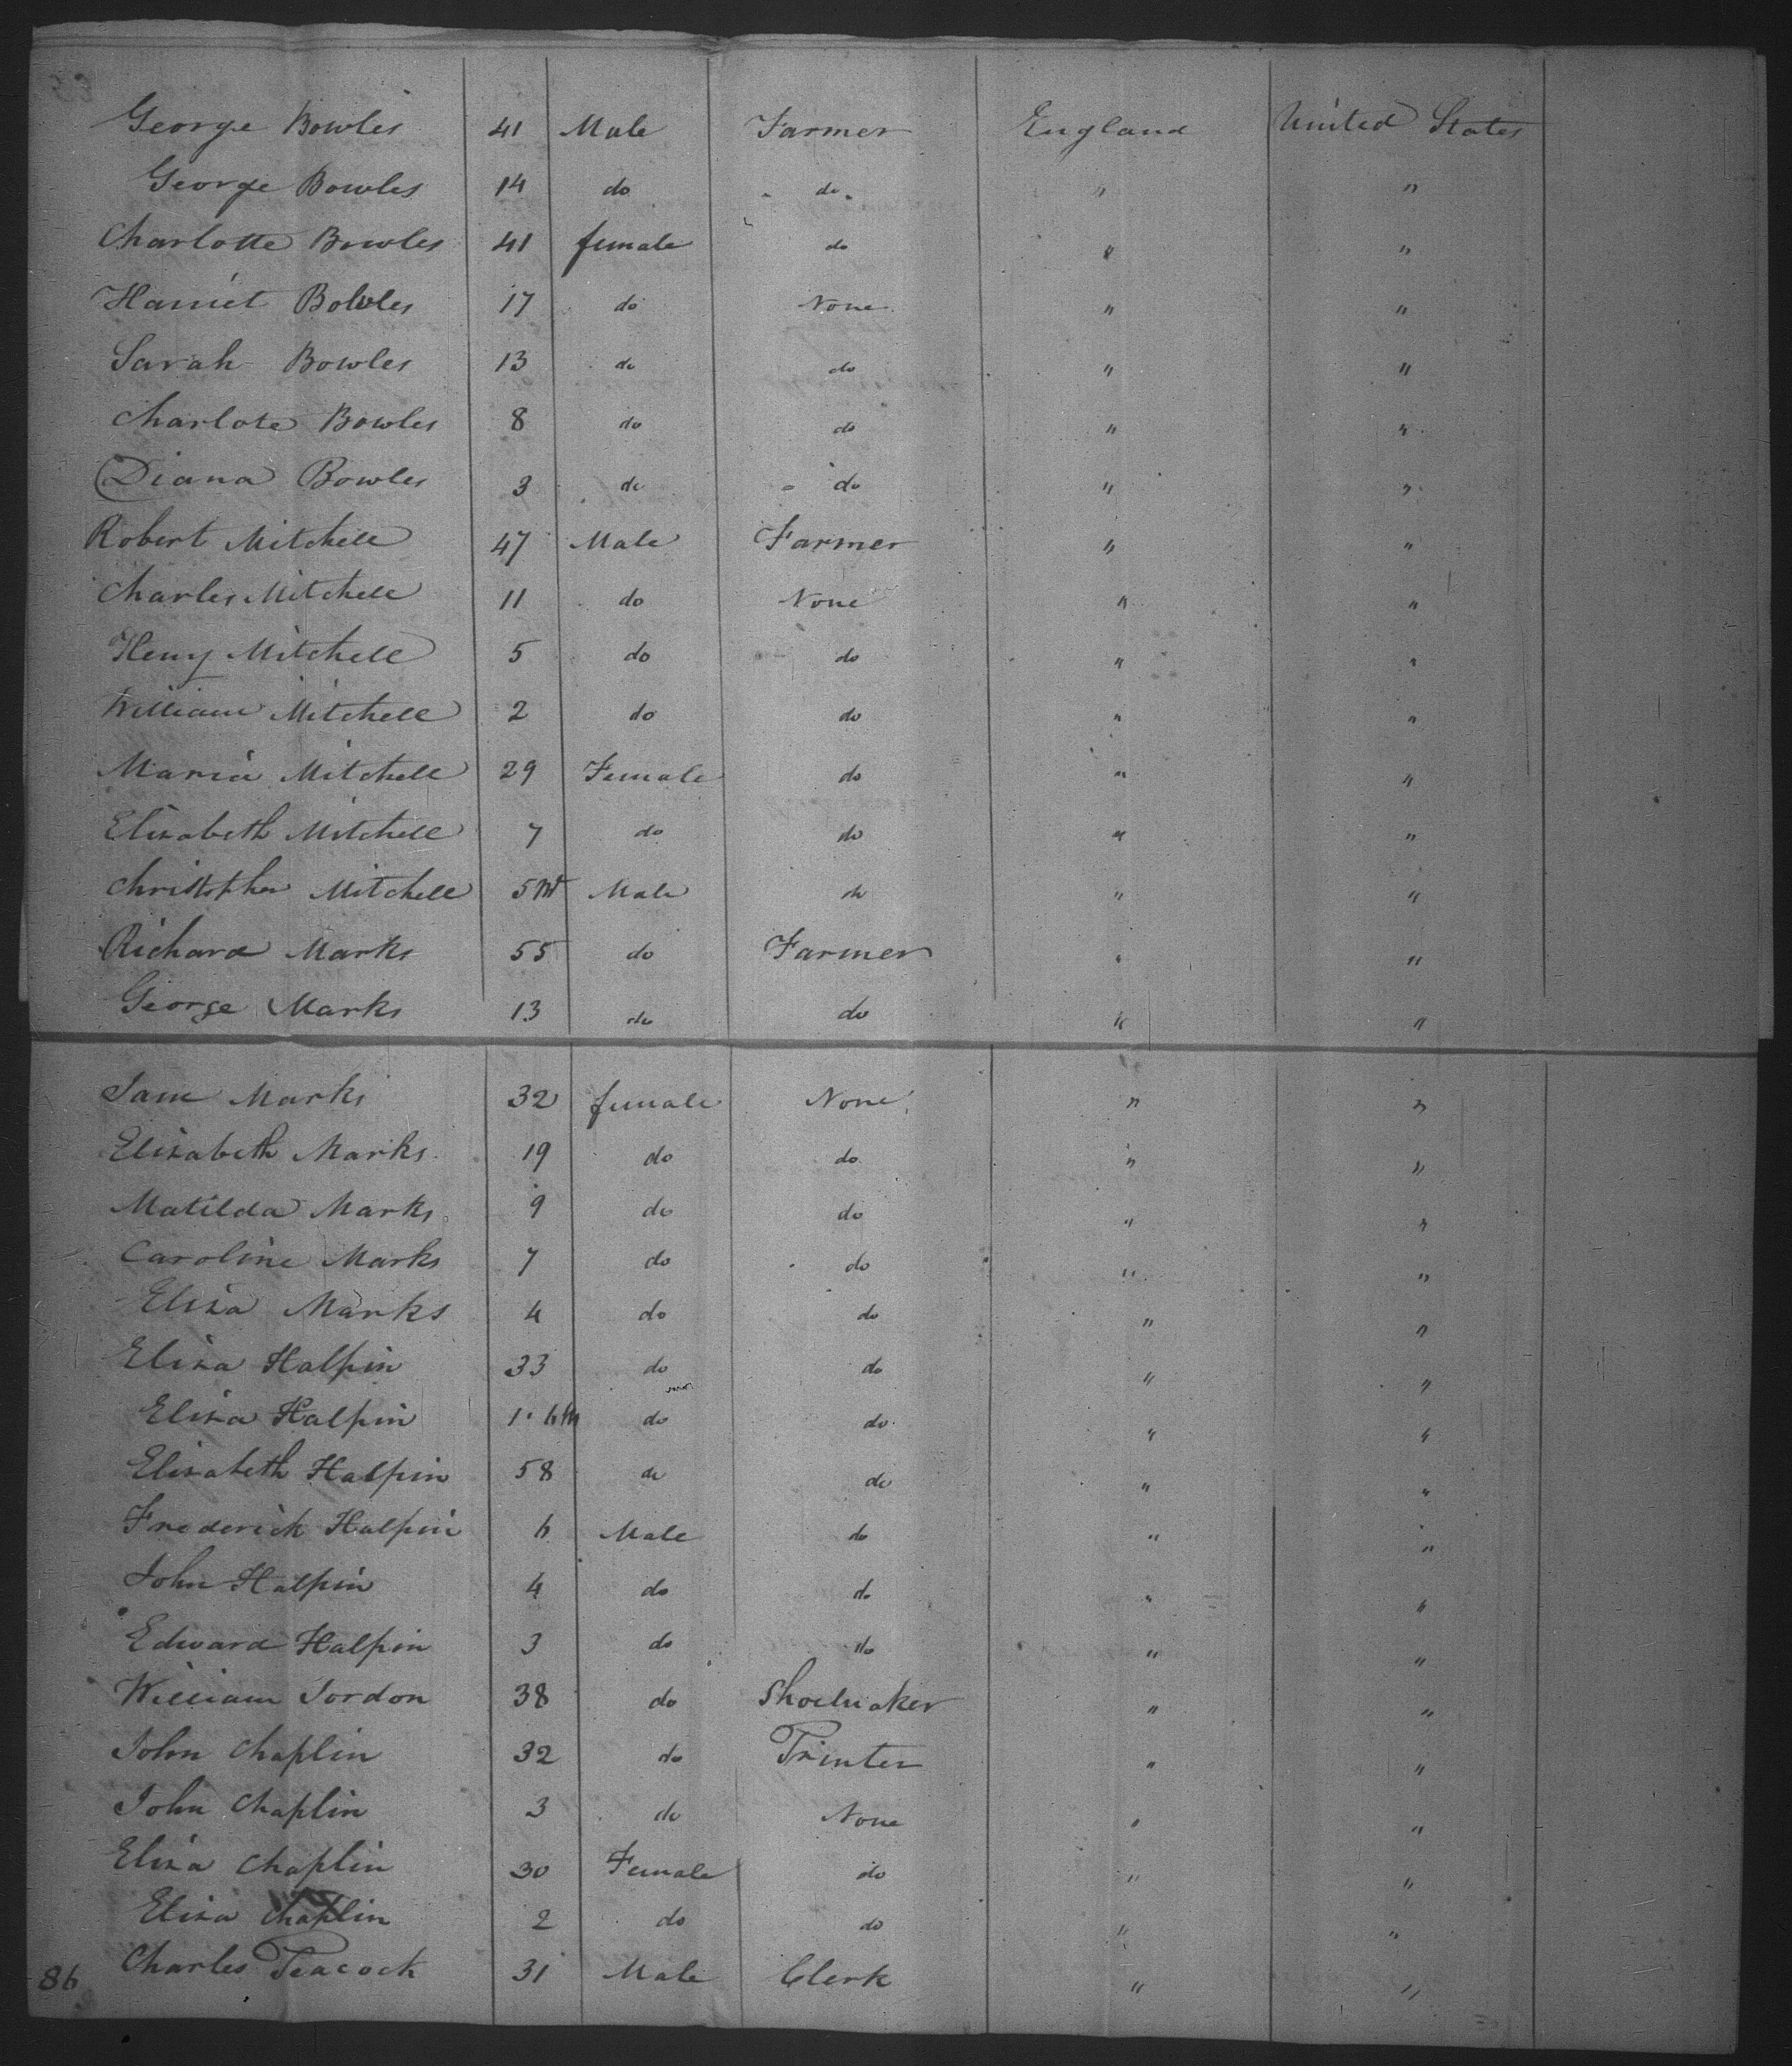 George Bowles 41 Male Farmer England United States
George Bowles 14 do do " "
Charlotte Bowles 41 female do " "
Harriet Bowles 17 do None " "
Sarah Bowles 13 do do " "
Charlote Bowles 8 do do " "
Diana Bowles 3 do do " "
Robert Mitchell 47 Male Farmer " "
Charles Mitchell 11 do None " "
Henry Mitchell 5 do do " "
William Mitchell 2 do do " "
Maria Mitchell 29 Female do " "
Elizabeth Mitchell 7 do do " "
Christopher Mitchell 5 Mt Male do " "
Richard Marks 55 do Farmer " "
George Marks 13 do do " "
Jane Marks 32 female None " "
Elizabeth Marks 19 do do " "
Matilda Marks 9 do do " "
Caroline Marks 7 do do " "
Eliza Marks 4 do do " "
Eliza Halpin 33 do do " "
Eliza Halpin 1 . 6 m do do " "
Elizabeth Halpin 58 do do " "
Frederick Halpin 6 Male do " "
John Halpin 4 do do " "
Edward Halpin 3 do do " "
William Jordon 38 do Shoemaker " "
John Chaplin 32 do Printer " "
John Chaplin 3 do None " "
Eliza Chaplin 30 Female do " "
Eliza Chaplin 2 do do " "
86 Charles Peacock 31 Male Clerk " "